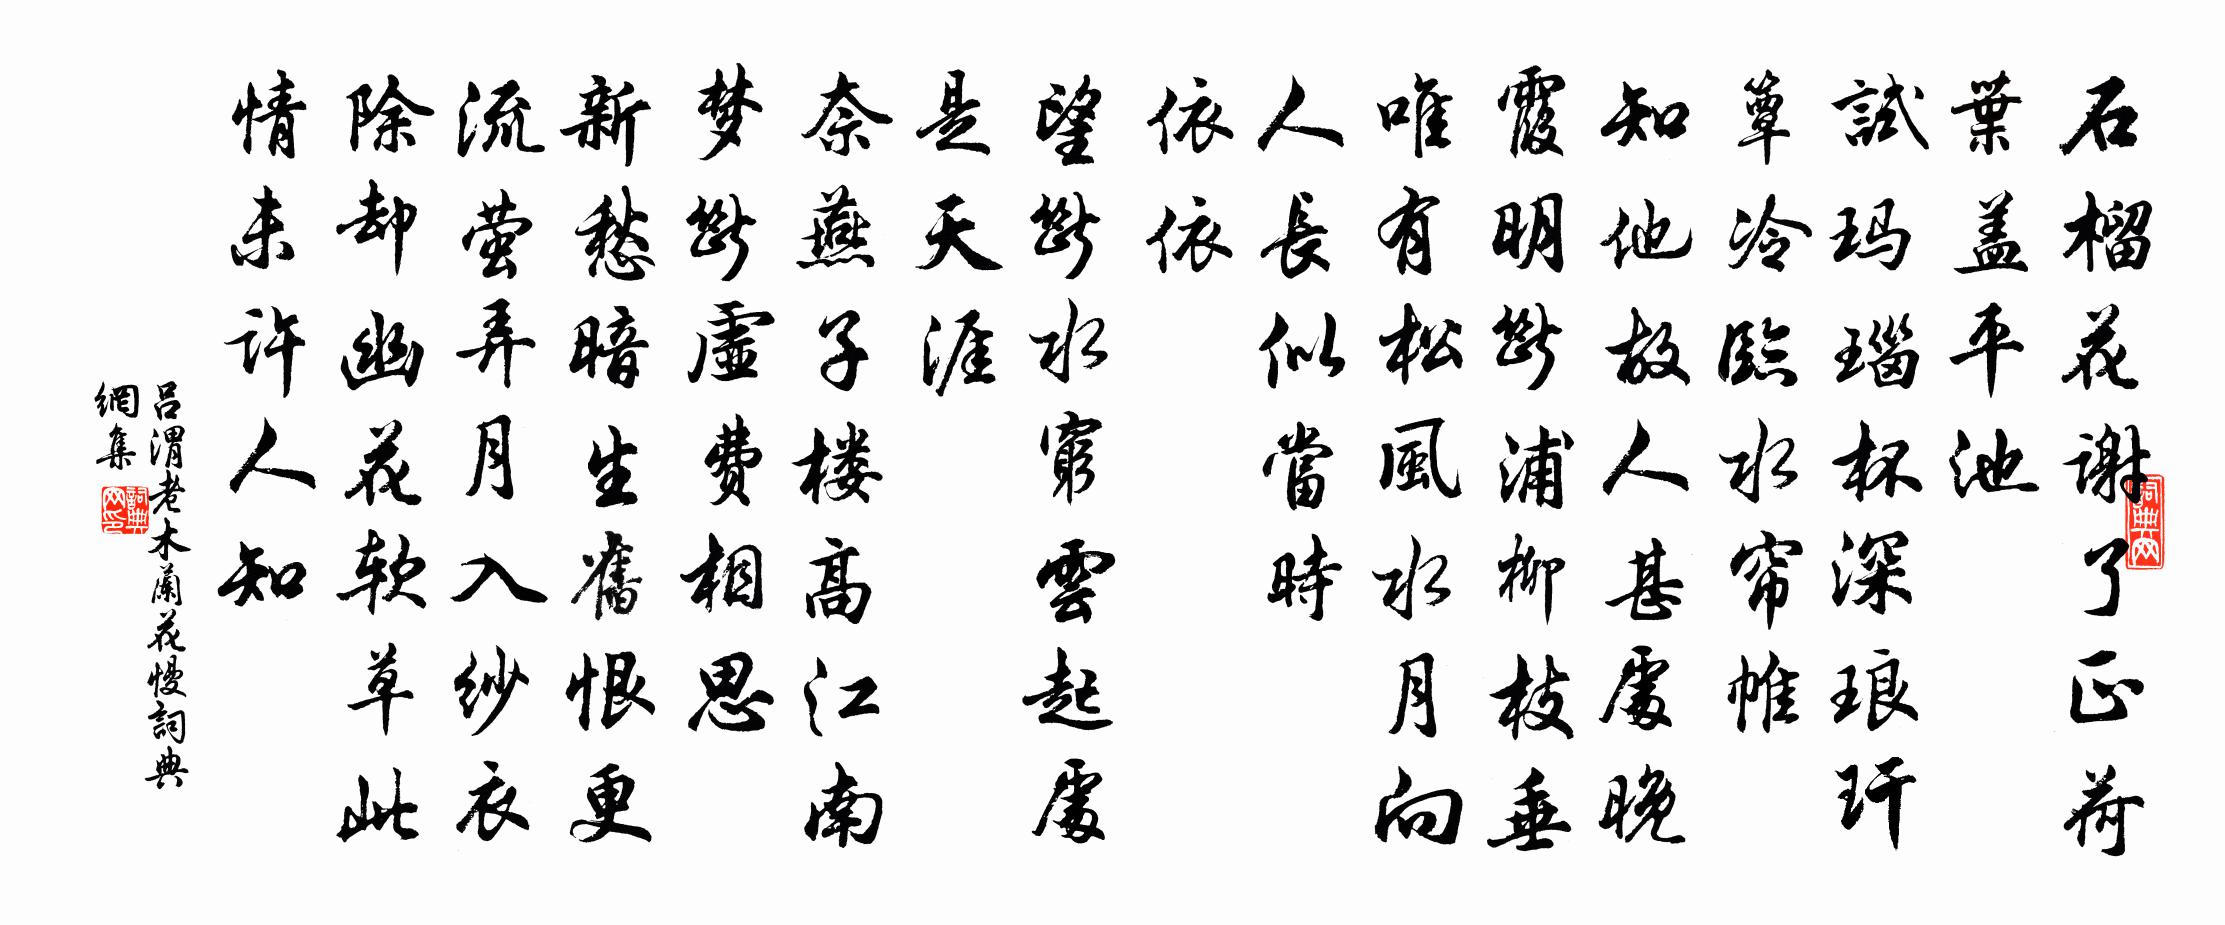 石榴花谢了正荷
葉盖平池
試玛瑙杯深琅玕
簟冷臨水帘帷
知他故人甚處晚
霞明斷浦柳枝垂
唯有松風水月向
人長似當時
依依
望斷水窮雲起處
是天涯
奈燕子楼高江南
梦斷虛費相思
新愁暗生舊恨更
流萤弄月入紗衣
除却幽花软草此
情未许人知
吕渭老木蘭花慢詞典
網集
詞典网
詞典网印